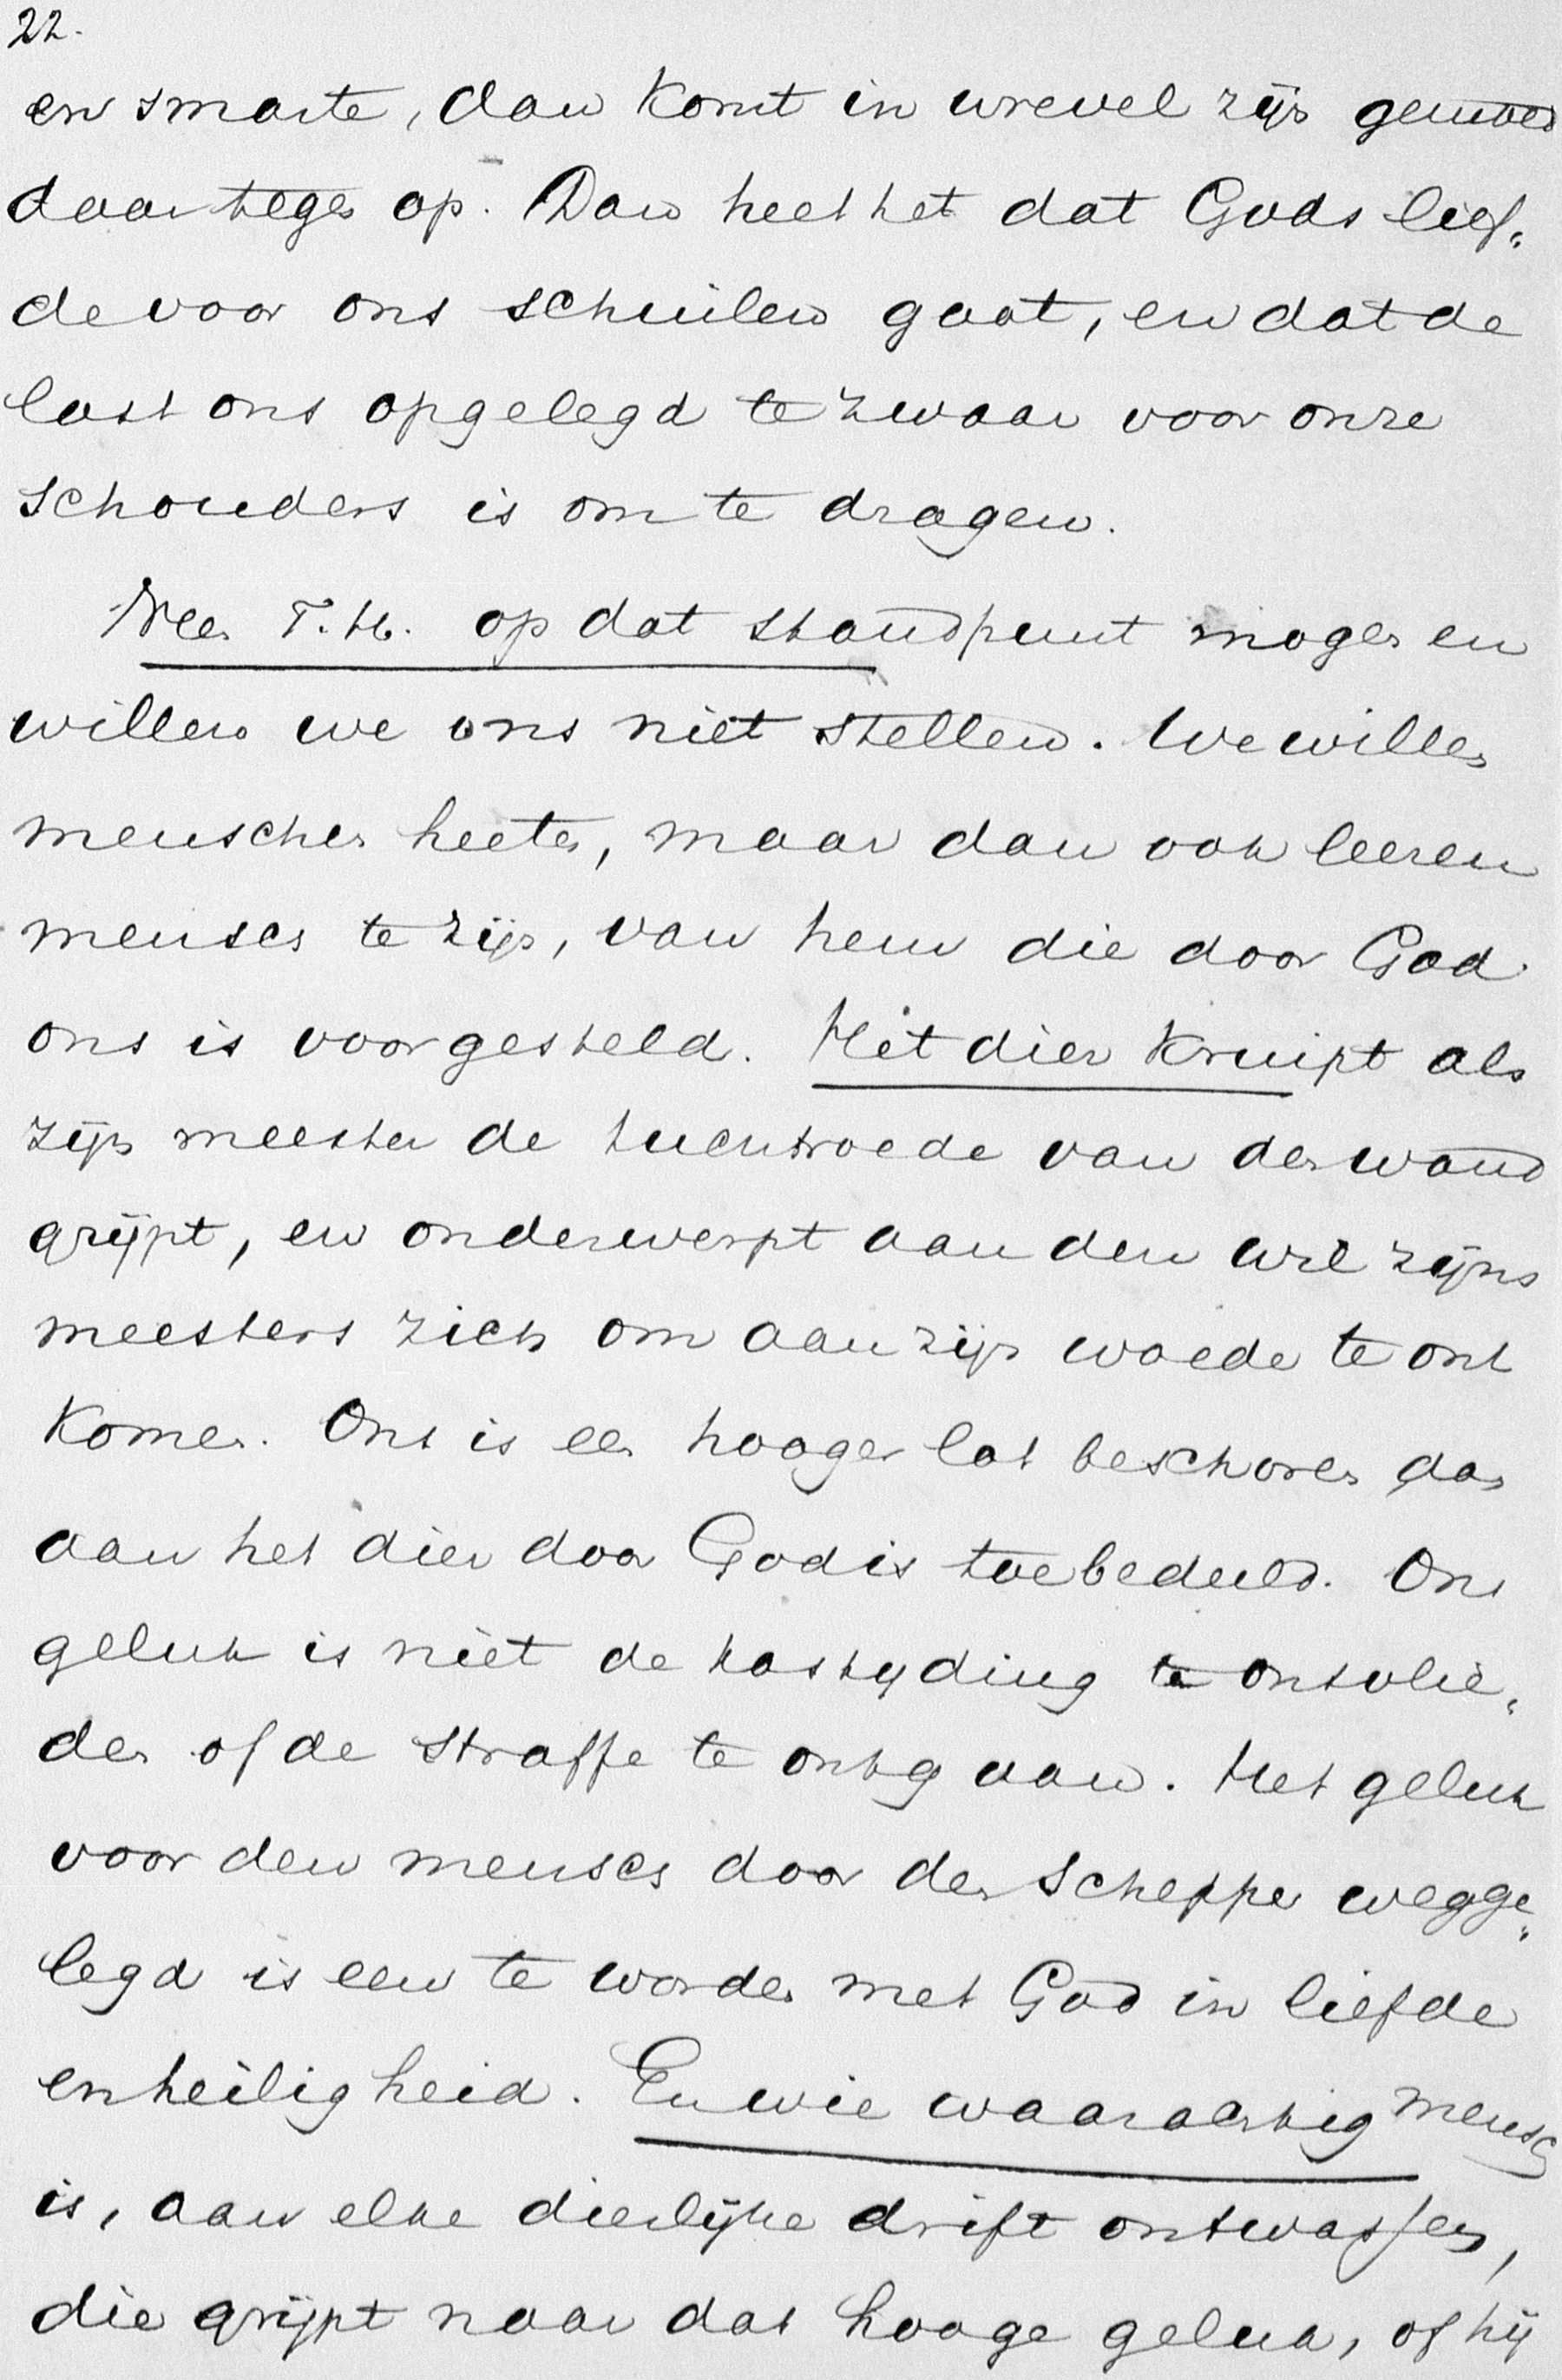 22.
en smarte, dan komt in wrevel zijn gemoed
daartegen op. Dan heet het dat Gods lief„
de voor ons schuilen gaat, en dat de
last ons opgelegd te zwaar voor onze
schouders is om te dragen.
Nee, T.H. op dat standpunt mogen en
willen we ons niet stellen. We willen
menschen heeten, maar dan ook leeren
mensch te zijn, van hem die door God
ons is voorgesteld. Het dier kruipt als
zijn meester de tuchtroede van den wand
grijpt, en onderwerpt aan den wil zijns
meesters zich om aan zijn woede te ont
komen. Ons is een hooger lot beschoren dan
aan het dier door God is toebedeeld. Ons
geluk is niet de kastijding te ontvlie„
den of de straffe te ontgaan. Het geluk
voor den mensch door den Schepper wegge„
legd is een te worden met God in liefde
en heiligheid. En wie waarachtig mensch
is, aan elke dierlijke drift ontwassen,
die grijpt naar dat hooge geluk, of hij